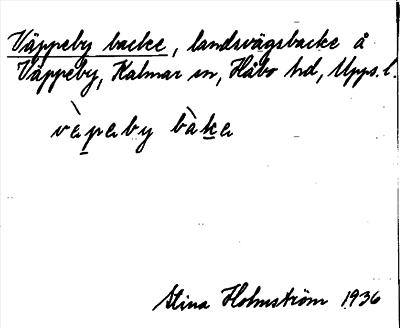 Väppeby backe, landsvägsbacke å
Väppeby, Kalmar sn, Håbo hd, Upps. l.
vàpeby bàka
Stina Holmström 1936